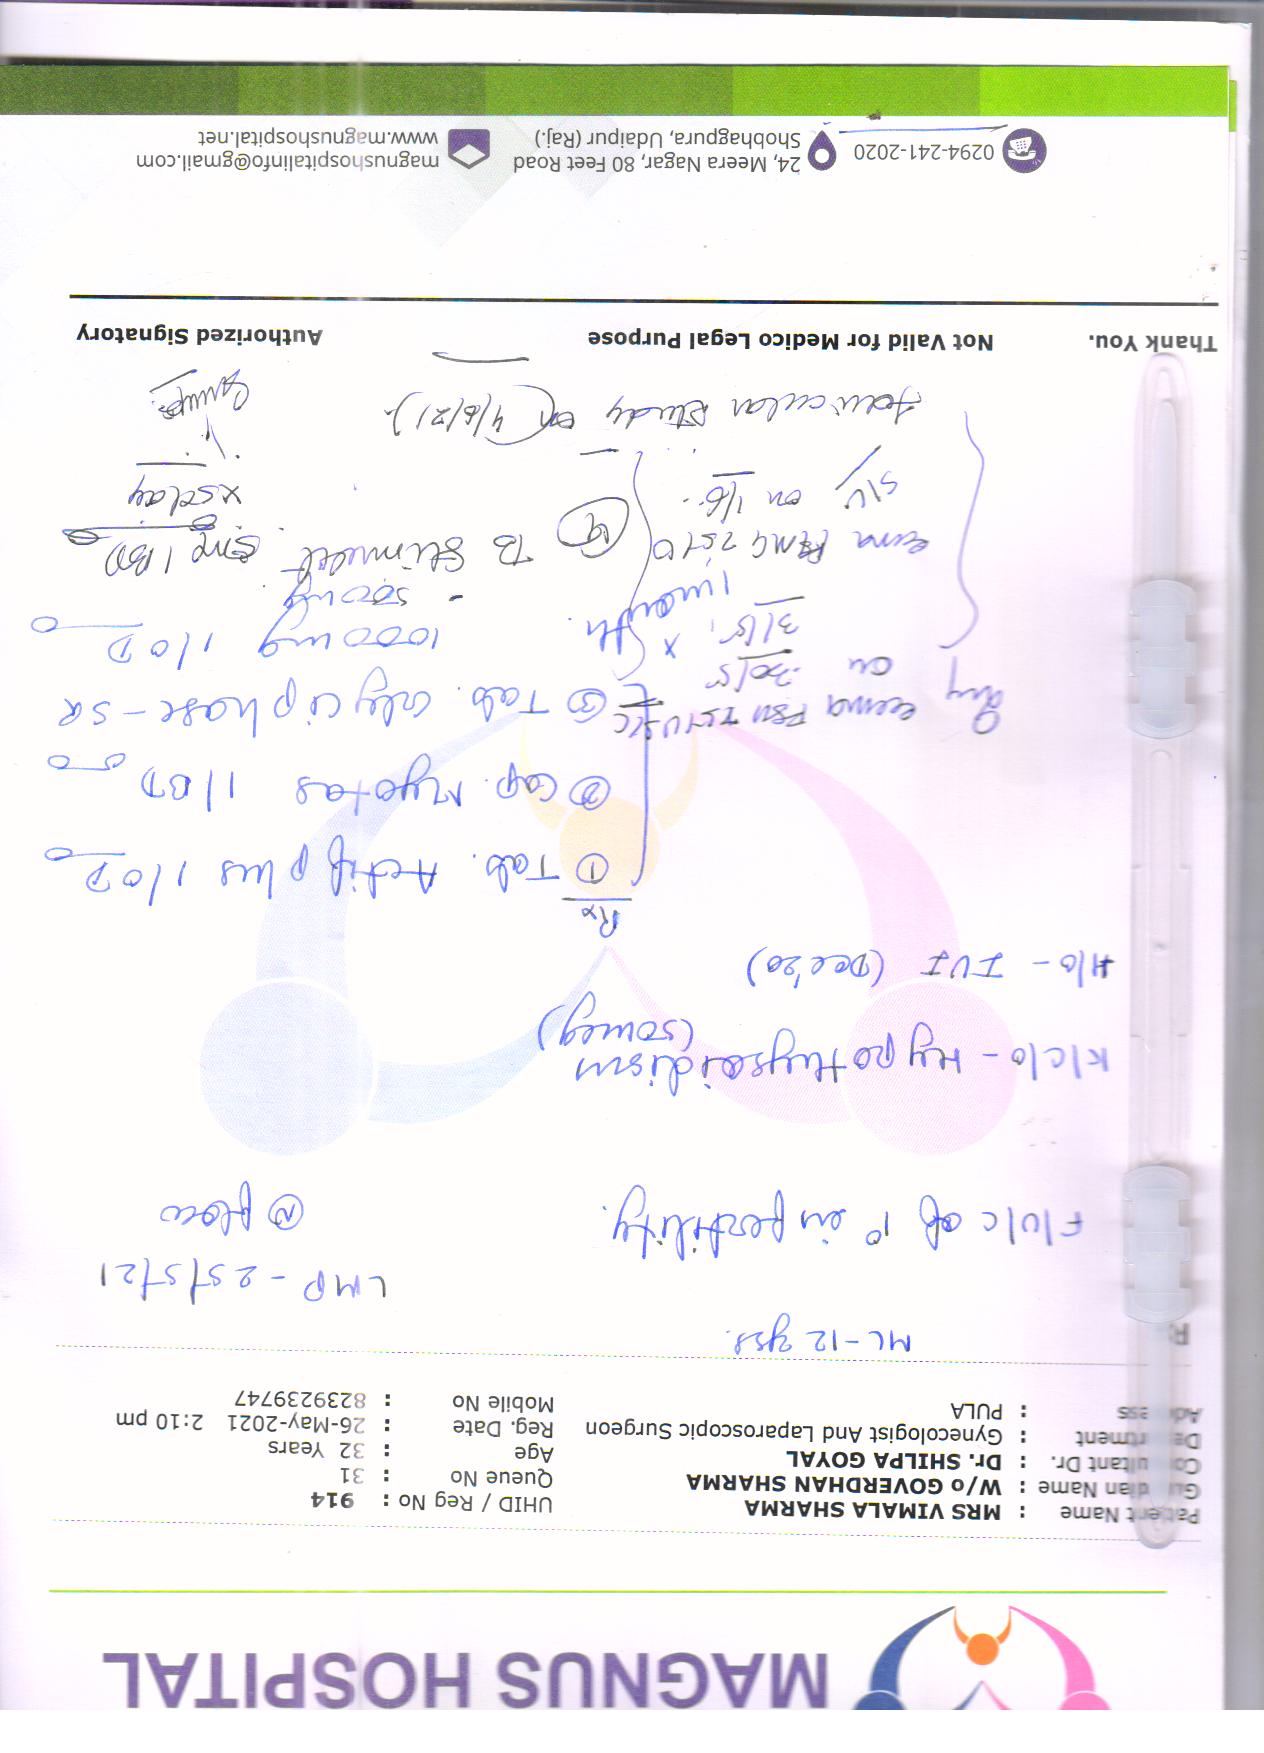 MAGNUS HOSPITAL
Patient Name : MRS VIMALA SHARMA
UHID / Reg No : 914
Guardian Name : W/o GOVERDHAN SHARMA
Queue No : 31
Consultant Dr. : Dr. SHILPA GOYAL
Age : 32 Years
Department : Gynecologist And Laparoscopic Surgeon
Reg. Date : 26-May-2021 2:10 pm
Address : PULA
Mobile No : 8239239747
R
ML-12 yrs.
LMP - 25/5/21
F/U/C of 1° infertility.
(N) flow
K/C/O - Hypothyroidism
(50mcg)
H/O - IUI (Dec'20)
Rx
① Tab. Actif plus 1/OD
② Cap. Myotas 1/BD
③ Tab. Glyciphase-SR
1000 mg 1/OD
- 500mg
x 1 month
④
x 5 day
Inj
on 30/5
31/5,
HMG
S/C
on 1/6.
Follicular study on (4/6/21)
Thank You.
Not Valid for Medico Legal Purpose
Authorized Signatory
0294-241-2020
24, Meera Nagar, 80 Feet Road
Shobhagpura, Udaipur (Raj.)
magnushospitalinfo@gmail.com
www.magnushospital.net